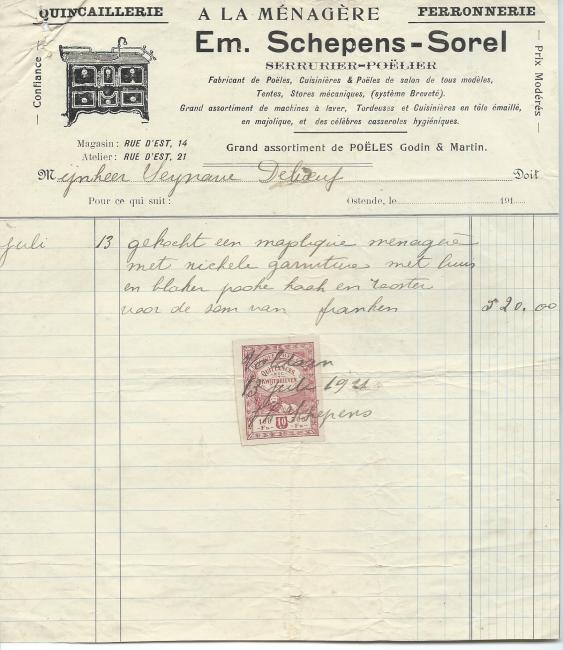 QUINCAILLERIE
A LA MÉNAGÈRE
FERRONNERIE
— Confiance —
Em. Schepens-Sorel
— Prix Modérés —
SERRURIER-POÊLIER
Fabricant de Poêles, Cuisinières & Poêles de salon de tous modèles,
Tentes, Stores mécaniques, (système Breveté).
Grand assortiment de machines à laver, Tordeuses et Cuisinières en tôle émaillé,
en majolique, et des célèbres casseroles hygiéniques.
Magasin : RUE D'EST, 14
Atelier : RUE D'EST, 21
Grand assortiment de POÊLES Godin & Martin.
Mijnheer Seynave Doit
Pour ce qui suit : Ostende, le 191
juli 13 gekocht een majolique menagère
met nickele garnituur met buis
en blaker pooke haak en rooster
voor de som van franken 520.00
Voldaan
QUITTANCES
KWIJTSCHRIFTEN
13 juli 1921
Schepens
100 10
-Fr- -Fr-